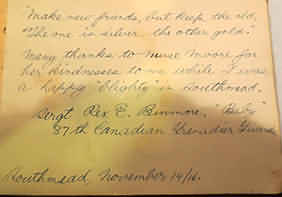 "Make new friends, but keep the old,
"The one is silver, the other gold."
Many thanks to Nurse Moore for
her kindnesses to me while I was
a happy "blighty" in Southmead.
Sergt Rex E. Binmore, "Billy"
87th Canadian Grenadier Guards
Southmead, November 14/16.